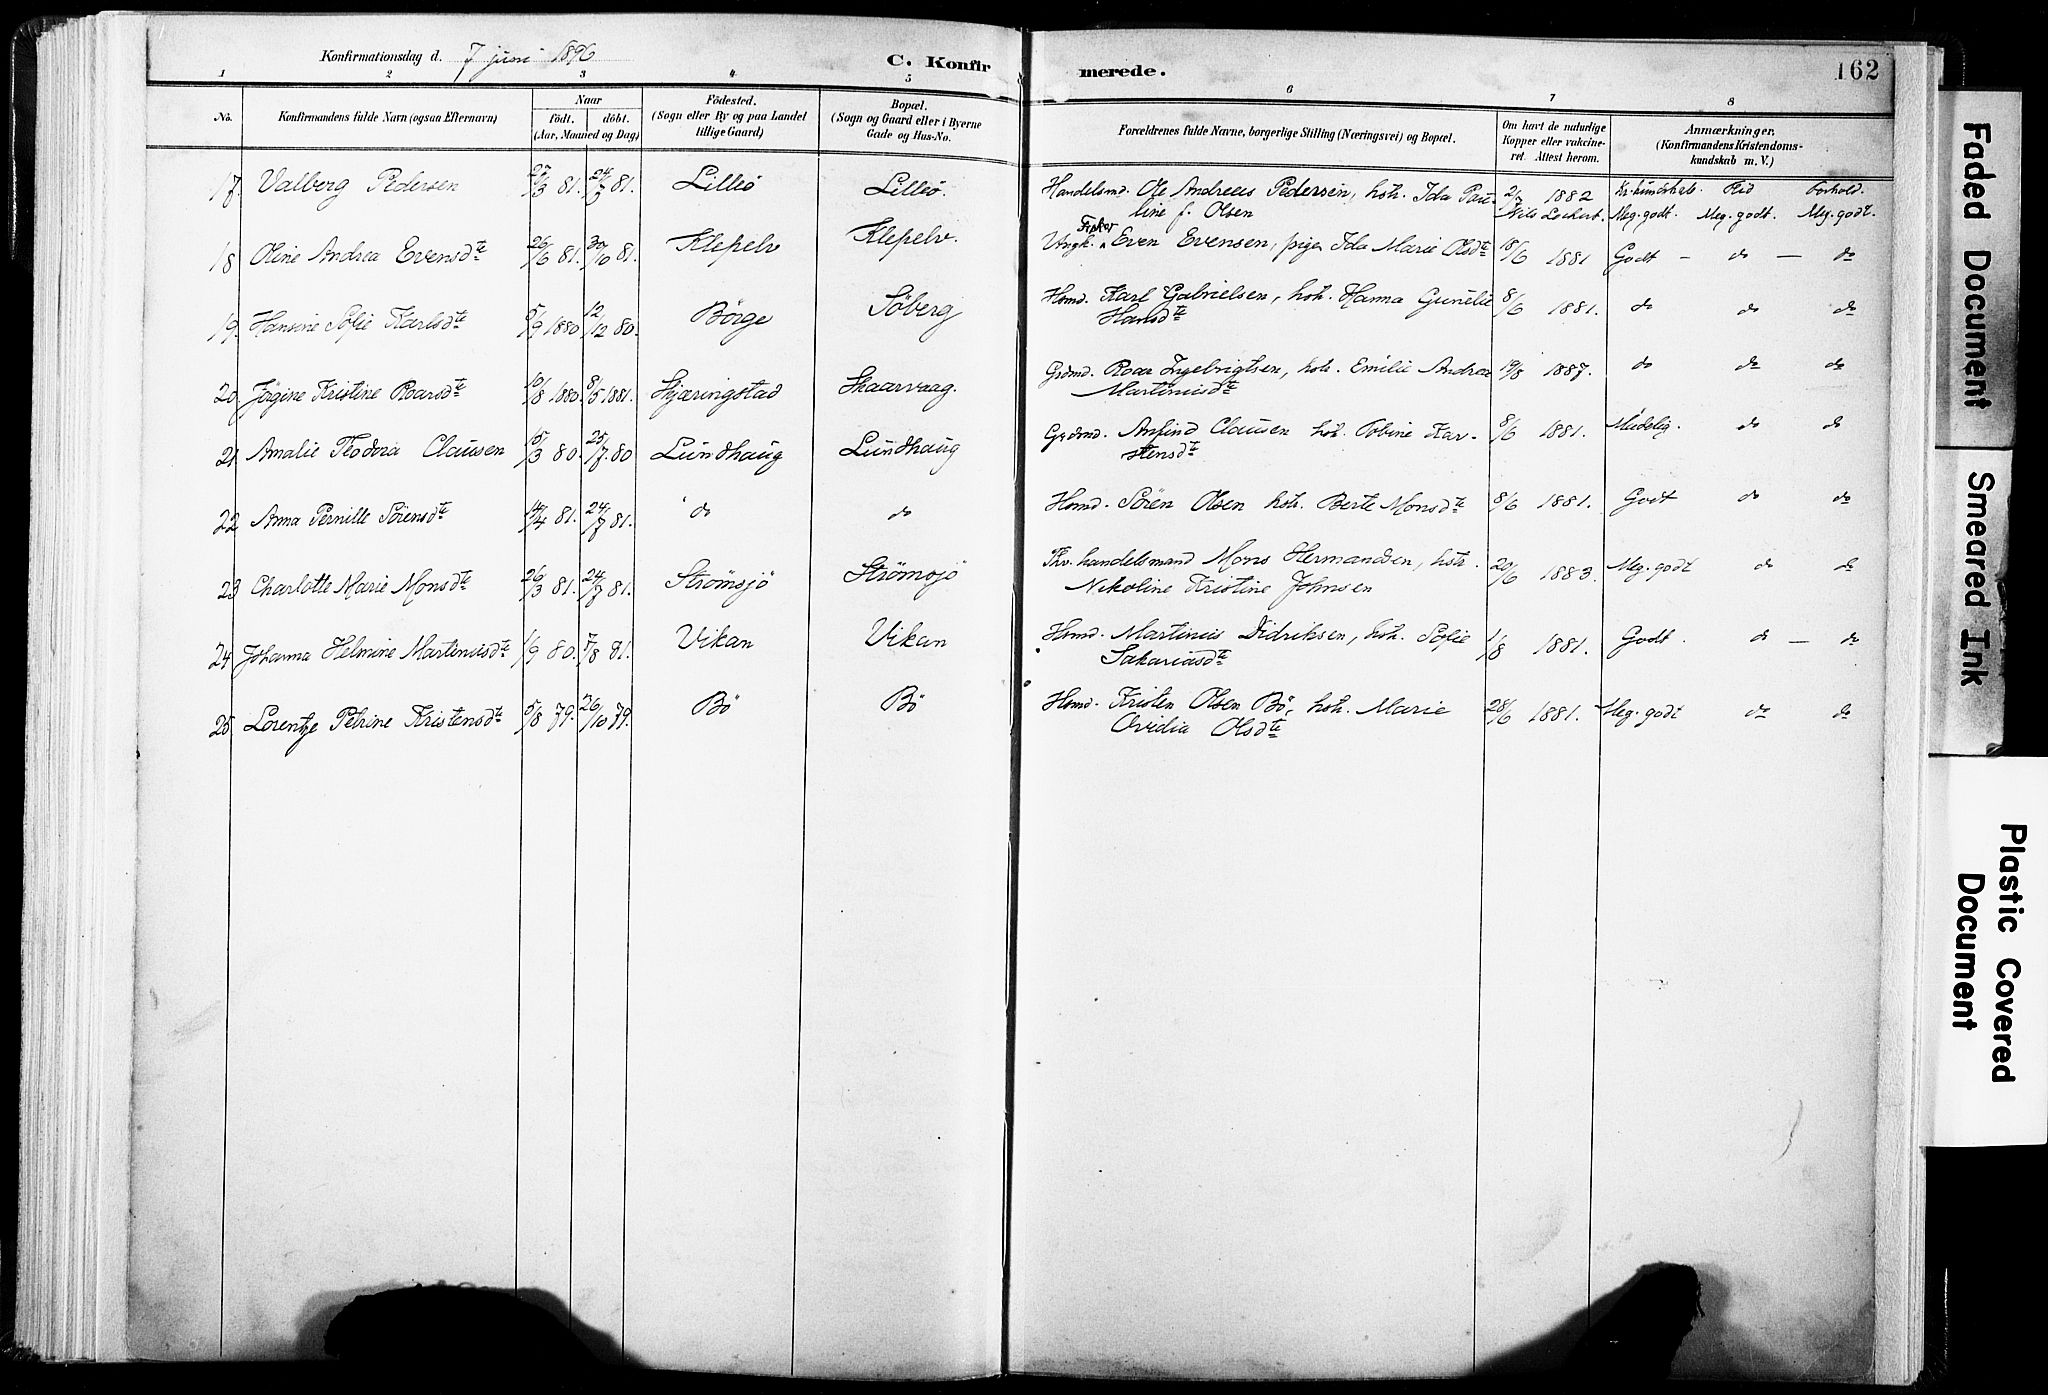 Konfirmationsdag d. 7 juni 1896
C. Konfirmerede.
162
1 2 3 4 5 6 7 8
No. Konfirmandens fulde Navn (ogsaa Efternavn) Naar födt. döbt. (Aar, Maaned og Dag) Födested. (Sogn eller By og paa Landet tillige Gaard) Bopæl. (Sogn og Gaard eller i Byerne Gade og Hus-No. Forældrenes fulde Navne, borgerlige Stilling (Næringsvei) og Bopæl. Om havt de naturlige Kopper eller vakcineret. Attest herom. Anmærkninger. (Konfirmandens Kristendomskundskab m. V.)
Kr. kundskab. Flid Forhold.
17. Valborg Pedersen 27/3 81. 24/7 81. Lilleö Lilleö. Handelsmd. Ole Andreas Pedersen, hstr. Ida Pau-
line f. Olsen 2/7 1882 Nils Lockert. Meg. godt. Meg. godt. Meg. godt.
18 Oline Andrea Evensdte 26/6 81. 30/10 81. Klepelv Klepelv. Ungk. Fisker Even Evensen, pige Ida Marie Olsdte 18/6 1881 Godt – do – do
19. Hansine Sofie Karlsdte 5/9 1880 12/12 80. Börge Söberg Husmd. Karl Gabrielsen, hstr. Hanna Gunelie
Hansdte 8/6 1881. do do do
20. Jörgine Kristine Roarsdte 10/8 1880. 8/5 1881. Skjæringstad Skaarvaag. Grdmd. Roar Ingebrigtsen, hstr. Emilie Andrea
Martinusdte 19/8 1887. do do do
21 Amalie Teodora Clausen 15/3 80. 25/7. 80 Lundhaug Lundhaug Grdmd. Arfind Clausen hstr. Tobine Kar-
stensdte 8/6 1881. Maadelig. do do
22 Anna Pernille Sörensdte 14/4 81. 24/7 81. do do Husmd. Sören Olsen hstr. Berte Monsdte 8/6 1881. Godt do do
23 Charlotte Marie Monsdte 26/3 81. 24/7 81. Strömsjö Strömsjö handelsmand Mons Hermandsen, hstr.
Nikoline Kristine Johnsen 20/6 1883. Meg. godt do do
24 Johanna Helmine Martinusdte 1/9 80. 7/8 81. Vikan Vikan Husmd. Martinus Didriksen, hstr. Sofie
Sakariasdte 1/8 1881. Godt. do – do
25 Lorentze Petrine Kristensdte 5/8 79. 26/10 79. Bö Bö Husmd. Kristen Olsen Bö, hstr. Marie
Ovidia Olsdte 28/6 1881. Meg. godt do do
Faded Document
Smeared Ink
Plastic Covered
Document